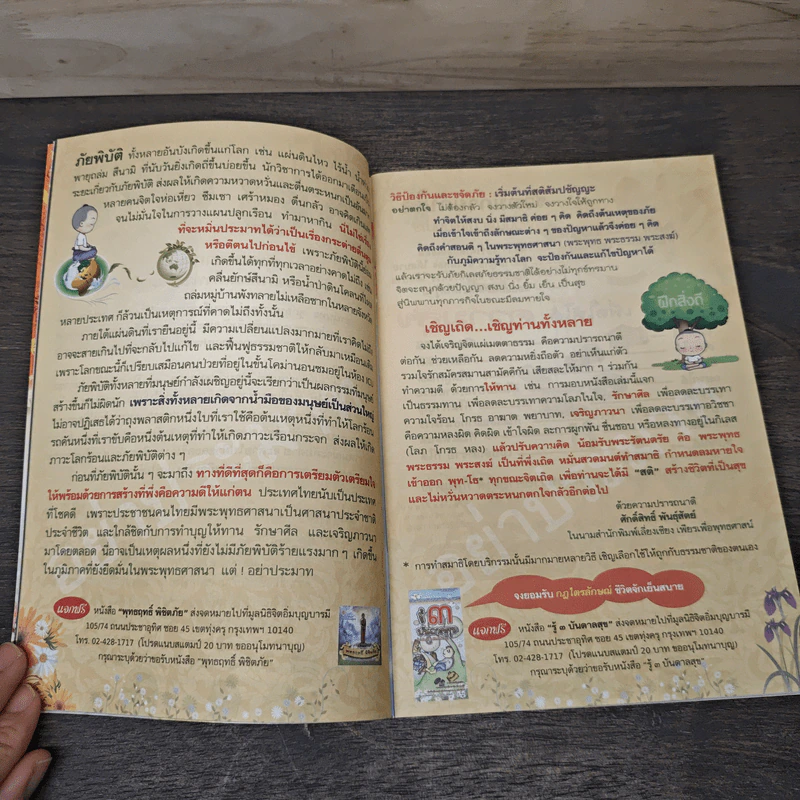 ภัยพิบัติ ทั้งหลายอันบังเกิดขึ้นแก่โลก เช่น แผ่นดินไหว ไร้น้ำ
พายุถล่ม สึนามิ ที่นับวันยิ่งเกิดถี่ขึ้นบ่อยขึ้น นักวิชาการได้ออกมาเตือน
ระยะเกี่ยวกับภัยพิบัติ ส่งผลให้เกิดความหวาดหวั่นและตื่นตระหนก
หลายคนจิตใจห่อเหี่ยว ซึมเซา เศร้าหมอง ตื่นกลัว อาจคิด
จนไม่มั่นใจในการวางแผนปลูกเรือน ทำมาหากิน นี่ไม่ใช่
ที่จะหมิ่นประมาทได้ว่าเป็นเรื่องกระต่ายตื่นตูม
หรือตีตนไปก่อนไข้ เพราะภัยพิบัตินี้
เกิดขึ้นได้ทุกที่ทุกเวลาอย่างคาดไม่ถึง เช่น
คลื่นยักษ์สึนามิ หรือน้ำป่าดินโคลนที่ไหล
ถล่มหมู่บ้านพังทลายไม่เหลือซากในหลายจังหวัด
หลายประเทศ ก็ล้วนเป็นเหตุการณ์ที่คาดไม่ถึงทั้งนั้น
ภายใต้แผ่นดินที่เรายืนอยู่นี้ มีความเปลี่ยนแปลงมากมายที่เราคิดไม่ถึง
อาจจะสายเกินไปที่จะกลับไปแก้ไข และฟื้นฟูธรรมชาติให้กลับมาเหมือนเดิม
เพราะโลกขณะนี้ก็เปรียบเสมือนคนป่วยที่อยู่ในขั้นโคม่านอนซมอยู่ในห้อง ICU
ภัยพิบัติทั้งหลายที่มนุษย์กำลังเผชิญอยู่นี้จะเรียกว่าเป็นผลกรรมที่มนุษย์
สร้างขึ้นก็ไม่ผิดนัก เพราะสิ่งทั้งหลายเกิดจากน้ำมือของมนุษย์เป็นส่วนใหญ่
ไม่อาจปฏิเสธได้ว่าถุงพลาสติกหนึ่งใบที่เราใช้คือต้นเหตุหนึ่งที่ทำให้โลกร้อน
รถคันหนึ่งที่เราขับคือหนึ่งต้นเหตุที่ทำให้เกิดภาวะเรือนกระจก ส่งผลให้เกิด
ภาวะโลกร้อนและภัยพิบัติต่าง ๆ
ก่อนที่ภัยพิบัตินั้น ๆ จะมาถึง ทางที่ดีที่สุดก็คือการเตรียมตัวเตรียมใจ
ให้พร้อมด้วยการสร้างที่พึ่งคือความดีให้แก่ตน ประเทศไทยนับเป็นประเทศ
ที่โชคดี เพราะประชาชนคนไทยมีพระพุทธศาสนาเป็นศาสนาประจำชาติ
ประจำชีวิต และใกล้ชิดกับการทำบุญให้ทาน รักษาศีล และเจริญภาวนา
มาโดยตลอด นี่อาจเป็นเหตุผลหนึ่งที่ยังไม่มีภัยพิบัติร้ายแรงมาก ๆ เกิดขึ้น
ในภูมิภาคที่ยังยึดมั่นในพระพุทธศาสนา แต่ ! อย่าประมาท
แจกฟรี หนังสือ "พุทธฤทธิ์ พิชิตภัย" ส่งจดหมายไปที่มูลนิธิจิตอิ่มบุญบารมี
105/74 ถนนประชาอุทิศ ซอย 45 เขตทุ่งครุ กรุงเทพฯ 10140
โทร. 02-428-1717 (โปรดแนบสแตมป์ 20 บาท ขออนุโมทนาบุญ)
กรุณาระบุด้วยว่าขอรับหนังสือ "พุทธฤทธิ์ พิชิตภัย"
วิธีป้องกันและขจัดภัย : เริ่มต้นที่สติสัมปชัญญะ
อย่าตกใจ ไม่ต้องกลัว จงวางตัวใหม่ จงวางใจให้ถูกทาง
ทำจิตให้สงบ นิ่ง มีสมาธิ ค่อย ๆ คิด คิดถึงต้นเหตุของภัย
เมื่อเข้าใจเข้าถึงลักษณะต่าง ๆ ของปัญหาแล้วจึงค่อย ๆ คิด
คิดถึงคำสอนดี ๆ ในพระพุทธศาสนา (พระพุทธ พระธรรม พระสงฆ์)
กับภูมิความรู้ทางโลก จะป้องกันและแก้ไขปัญหาได้
แล้วเราจะรับภัยกิเลสภัยธรรมชาติได้อย่างไม่ทุกข์ทรมาน
จิตจะสนุกด้วยปัญญา สงบ นิ่ง ยิ้ม เย็น เป็นสุข
สู่นิพพานทุกภารกิจในขณะมีลมหายใจ
ฝึกสิ่งดี
เชิญเถิด...เชิญท่านทั้งหลาย
จงได้เจริญจิตแผ่เมตตาธรรม คือความปรารถนาดี
ต่อกัน ช่วยเหลือกัน ลดความหยิ่งถือตัว อย่าเห็นแก่ตัว
รวมใจรักสมัครสมานสามัคคีกัน เสียสละให้มาก ๆ ร่วมกัน
ทำความดี ด้วยการให้ทาน เช่น การมอบหนังสือเล่มนี้แจก
เป็นธรรมทาน เพื่อลดละบรรเทาความโลภในใจ, รักษาศีล เพื่อลดละบรรเทา
ความใจร้อน โกรธ อาฆาต พยาบาท, เจริญภาวนา เพื่อลดละบรรเทาอวิชชา
คือความหลงผิด คิดผิด เข้าใจผิด ละการผูกพัน ชื่นชอบ หรือหลงทางอยู่ในกิเลส
(โลภ โกรธ หลง) แล้วปรับความคิด น้อมรับพระรัตนตรัย คือ พระพุทธ
พระธรรม พระสงฆ์ เป็นที่พึ่งเถิด หมั่นสวดมนต์ทำสมาธิ กำหนดลมหายใจ
เข้าออก พุท-โธ* ทุกขณะจิตเถิด เพื่อท่านจะได้มี "สติ" สร้างชีวิตที่เป็นสุข
และไม่หวั่นหวาดตระหนกตกใจกลัวอีกต่อไป
ด้วยความปรารถนาดี
ศักดิ์สิทธิ์ พันธุ์สัตย์
ในนามสำนักพิมพ์เลี่ยงเชียง เพียรเพื่อพุทธศาสน์
* การทำสมาธิโดยบริกรรมนั้นมีมากมายหลายวิธี เชิญเลือกใช้ให้ถูกกับธรรมชาติของตนเอง
จงยอมรับ กฎไตรลักษณ์ ชีวิตจักเย็นสบาย
แจกฟรี หนังสือ "รู้ ๓ บันดาลสุข" ส่งจดหมายไปที่มูลนิธิจิตอิ่มบุญบารมี
105/74 ถนนประชาอุทิศ ซอย 45 เขตทุ่งครุ กรุงเทพฯ 10140
โทร. 02-428-1717 (โปรดแนบสแตมป์ 20 บาท ขออนุโมทนาบุญ)
กรุณาระบุด้วยว่าขอรับหนังสือ "รู้ ๓ บันดาลสุข"